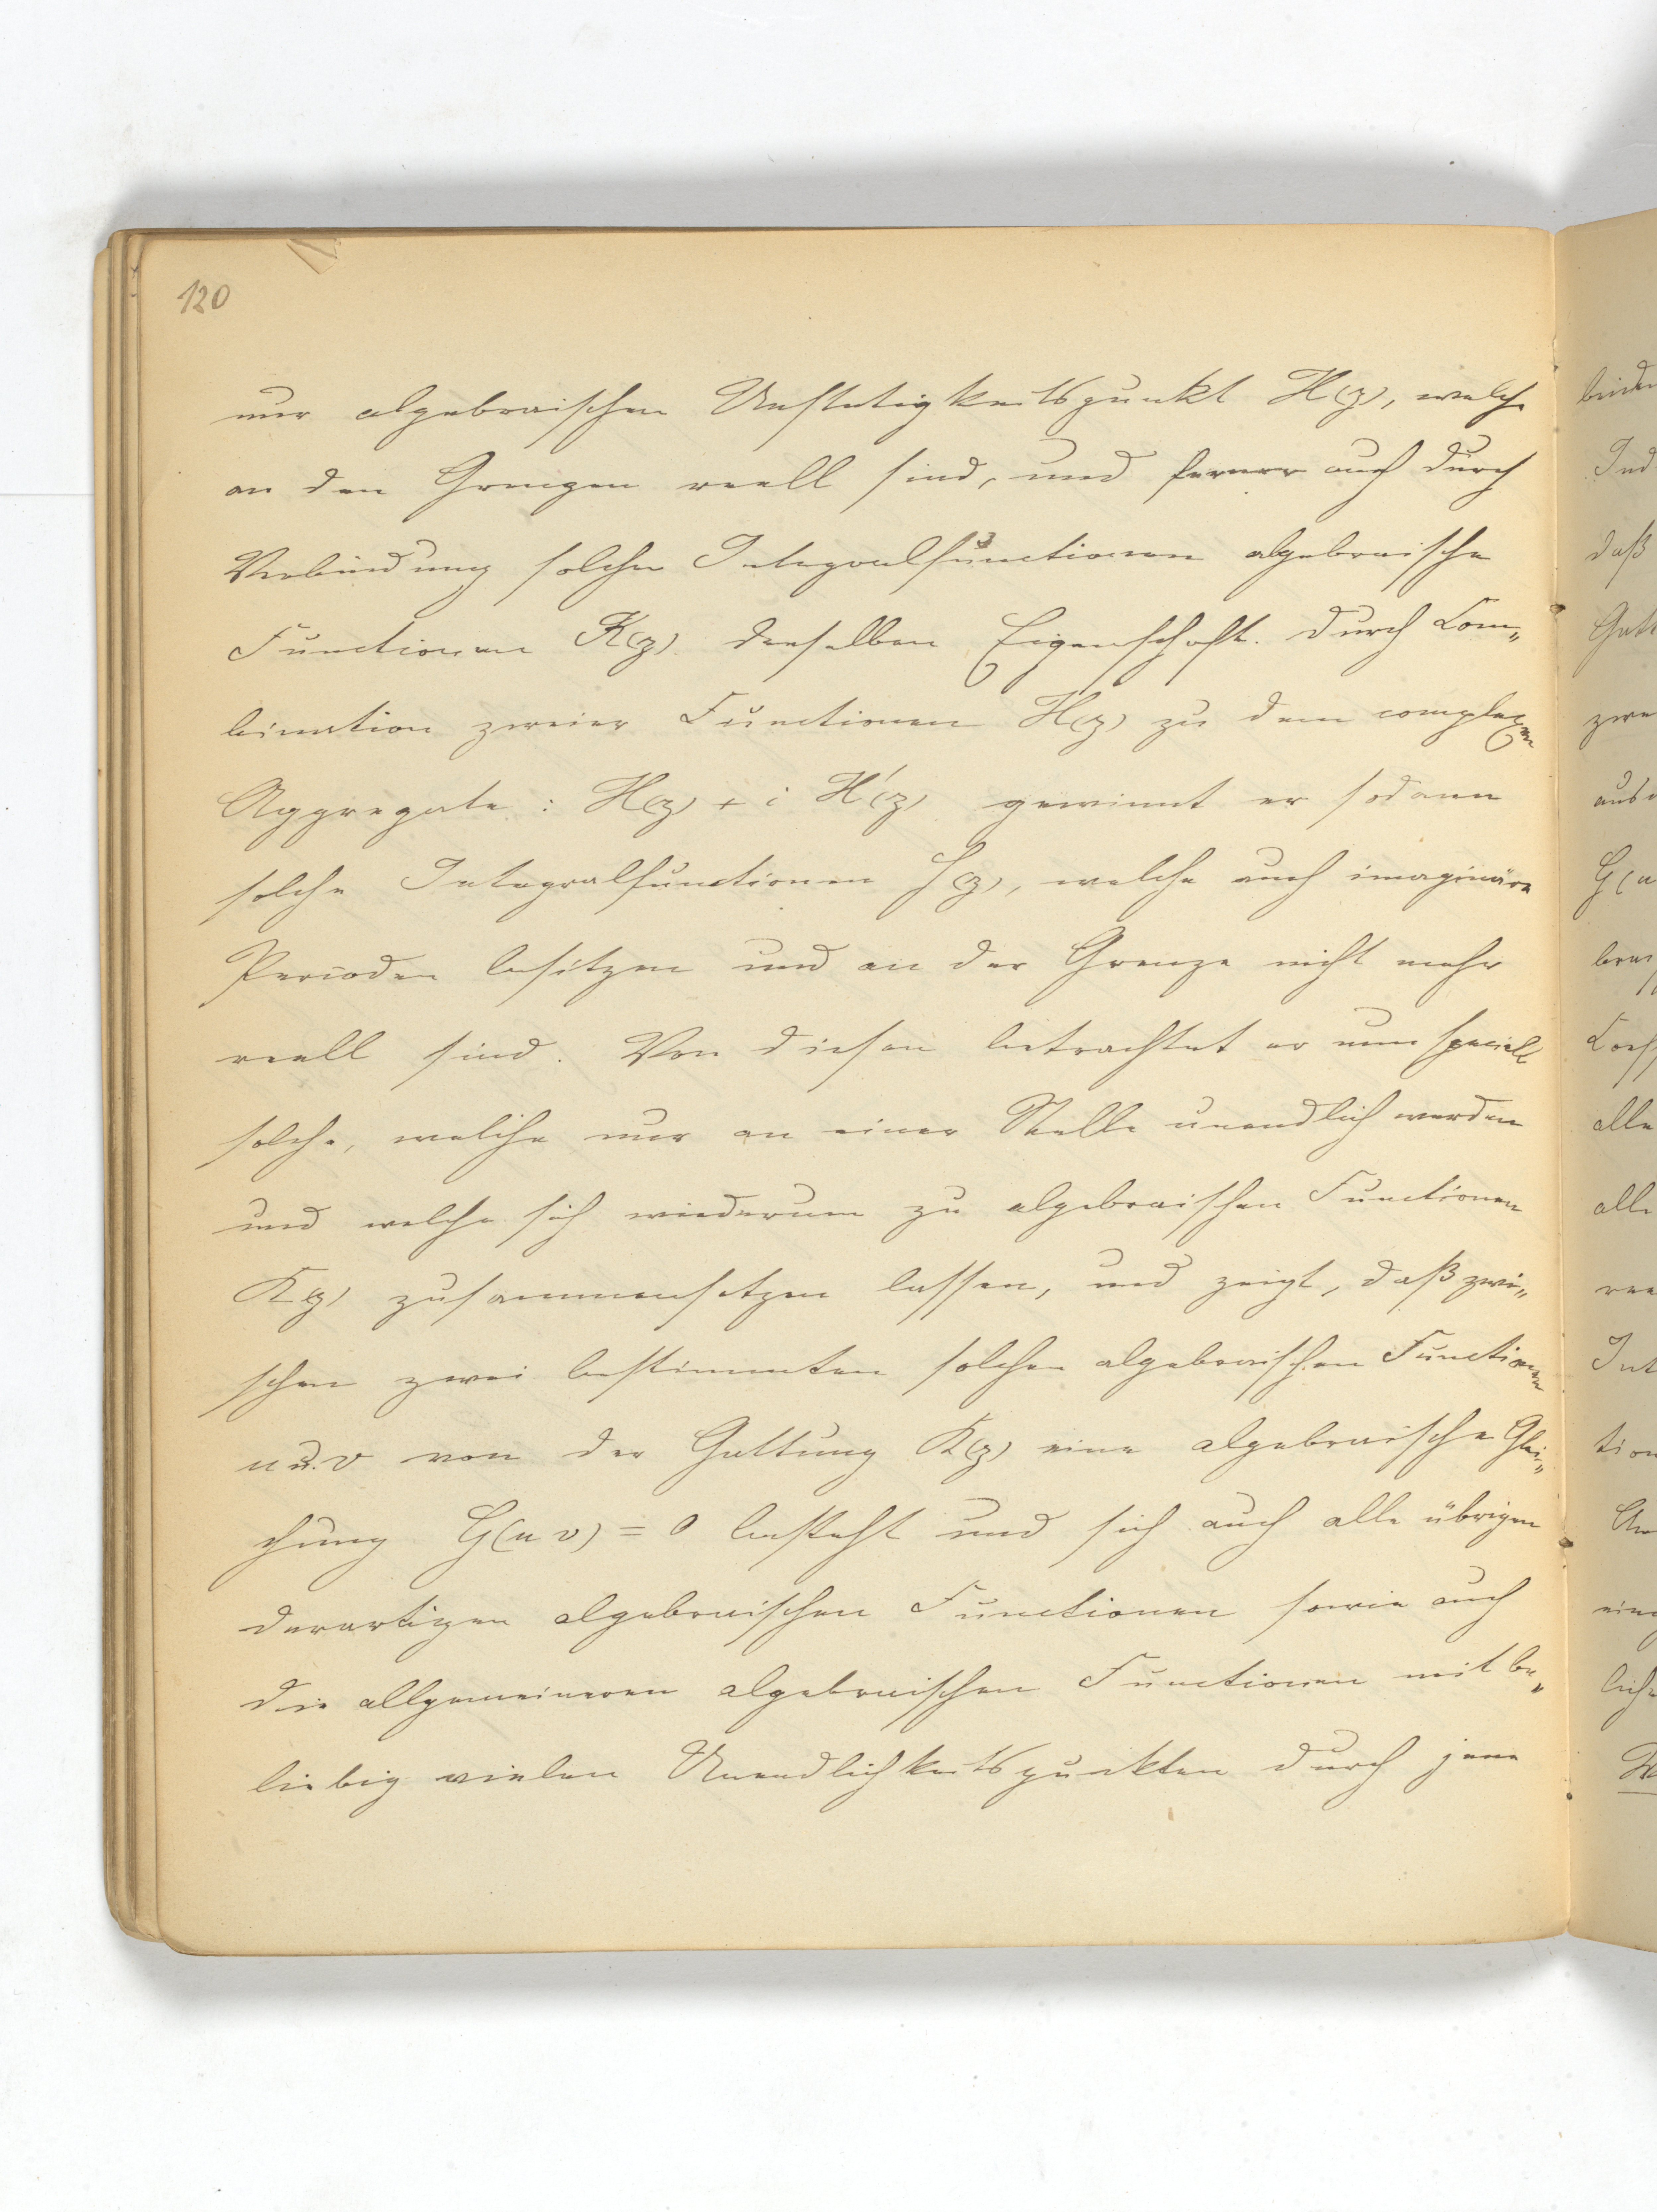 120
nur algebraischen Unstetigkeitspunkt H(z), welche
an den Grenzen reell sind, und ferner auch durch
Verbindung solcher Integralfunctionen algebraische
Functionen K(z) derselben Eigenschaft. Durch Com„
bination zweier Functionen H(z) zu dem complexen
Aggregate: H(z) + i H'(z) gewinnt er sodann
solche Integralfunctionen J(z), welche auch imaginäre
Perioden besitzen und an der Grenze nicht mehr
reell sind. Von diesen betrachtet er nun speciell
solche, welche nur an einer Stelle unendlich werden
und welche sich wiederum zu algebraischen Functionen
K(z) zusammensetzen lassen, und zeigt, daß zwi„
schen zwei bestimmten solchen algebraischen Functionen
u u. v von der Gattung K(z) eine algebraische Glei„
chung G(u v) = 0 besteht und sich auch alle übrigen
derartigen algebraischen Functionen sowie auch
die allgemeineren algebraischen Functionen mit be„
liebig vielen Unendlichkeitspunkten durch jene